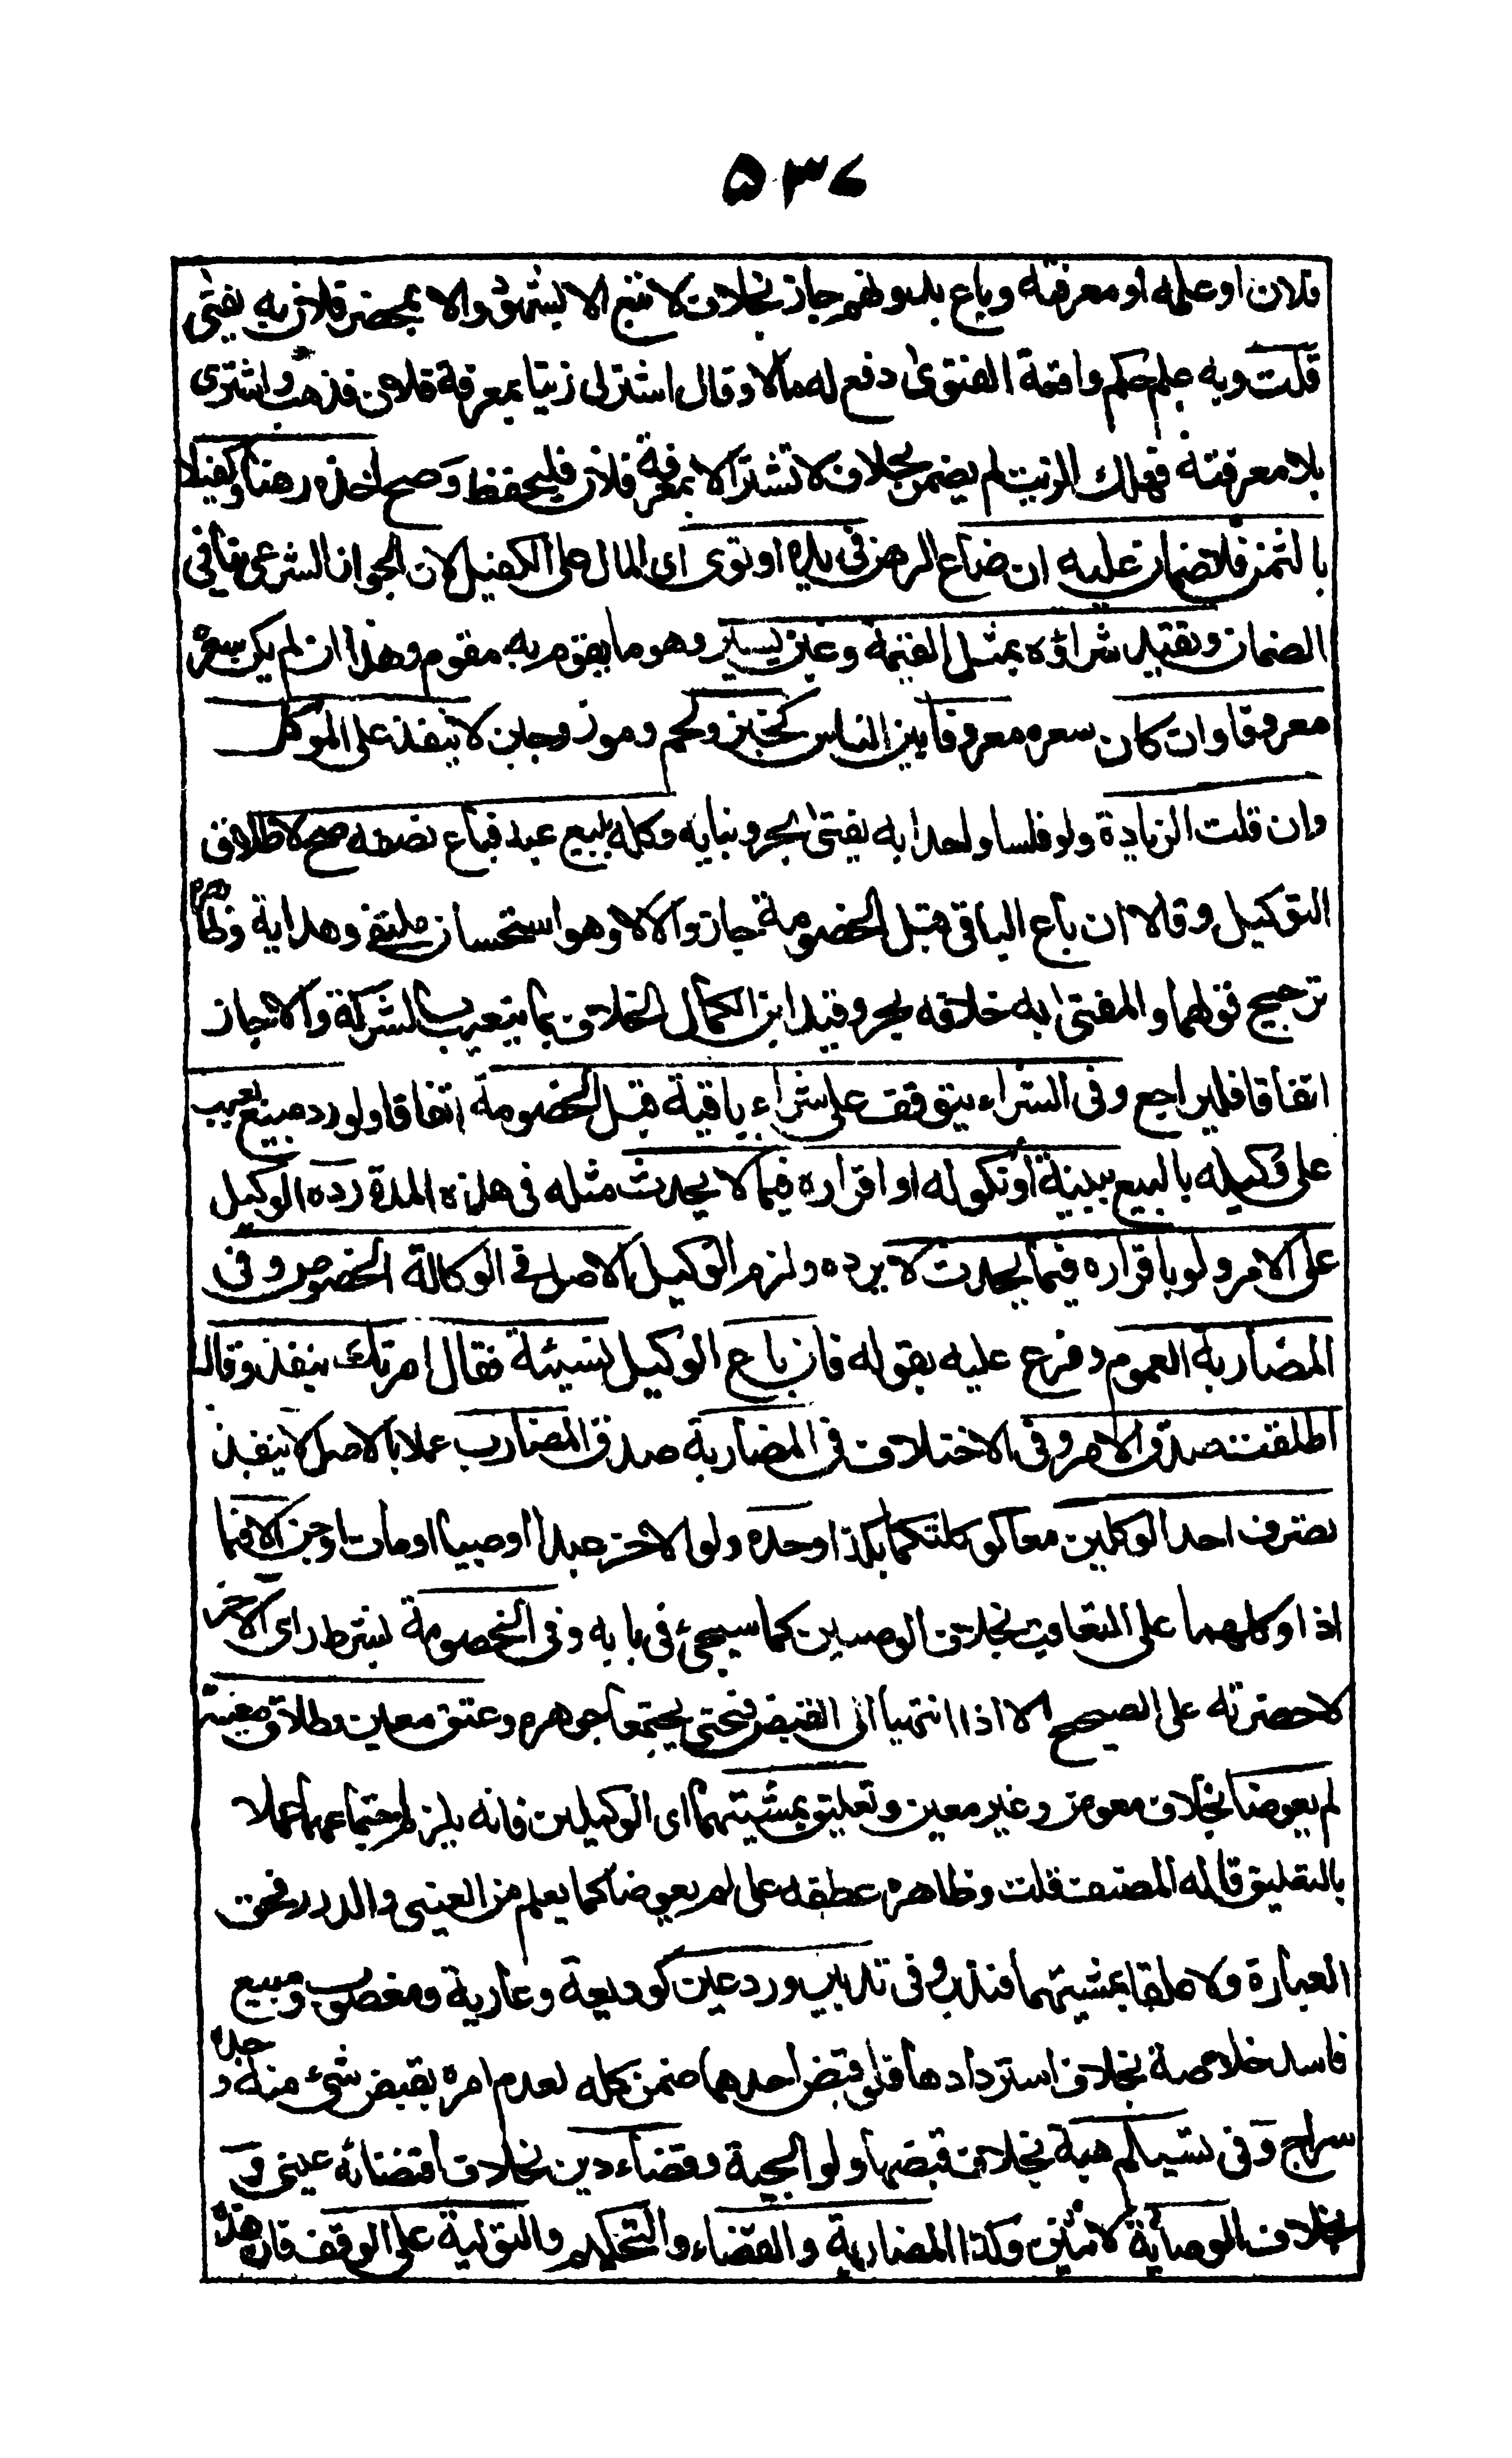 ۵۳۷
فلان او علمه او معرفته وباع بدونهم جاز بخلاف لا تبع الا بشهود والا بمحضر فلان به يفتى
قلت وبه علم حكم واقعة الفتوى دفع له مالا وقال اشتر لى زيتا بمعرفة فلان فذهب واشترى
بلا معرفته فهلك الزيت لم يضمن بخلاف لا تشتر الا بمعرفة فلان فليحفظ وصح اخذه رهنا وكفيلا
بالثمن فلا ضمان عليه ان ضاع الرهن فى يده او توى اى المال على الكفيل لان الجواز الشرعى ينافى
الضمان وتقيد شراؤه بمثل القيمة وغبن يسير وهو ما يقوم به مقوم وهذا ان لم يكن سعره
معروفا وان كان سعره معروفا بين الناس كخبز ولحم وموز وجبن لا ينفذ على الموكل
وان قلت الزيادة ولو فلسا واحدا به يفتى بحر وبنايه وكله ببيع عبد فباع نصفه صح لاطلاق
التوكيل وقالا ان باع الباقى قبل الخصومة جاز والا لا وهو استحسان ملتقى وهداية وظاهره
ترجيح قولهما والمفتى به خلافه بحر وقيد ابن الكمال الخلاف بما يتعيب بالشركة والا جاز
اتفاقا فليراجع وفى الشراء يتوقف على شراء باقية قبل الخصومة اتفاقا ولو رد مبيع بعيب
على وكيله بالبيع ببينة او نكوله او اقراره فيما لا يحدث مثله فى هذه المدة رده الوكيل
على الامر ولو باقراره فيما يحدث لا يرده ولزم الوكيل الاصل فى الوكالة الخصوص وفى
المضاربة العموم وفرع عليه بقوله فان باع الوكيل نسيئة فقال امرتك بنقد وقال
اطلقت صدق الامر وفى الاختلاف فى المضاربة صدق المضارب عملا بالاصل لا ينفذ
تصرف احد الوكيلين معا كوكلتكما بكذا وحده ولو الاخر عبدا او صبيا او مات او جن الا فيما
اذا وكلهما على التعاقب بخلاف الوصيين كما سيجئ فى بابه وفى الخصومة بشرط راى الاخر
لا حضرته على الصحيح الا اذا انتهيا الى القبض فحتى يجتمعا جوهره وعتق معين وطلاق معينة
لم يعوضا بخلاف معوض وغير معين وتعليق بمشيتهما اى الوكيلين فانه يلزم اجتماعهما عملا
بالتعليق قاله المصنف قلت وظاهره عطفه على لم يعوضا كما يعلم من العينى والدرر فحق
العبارة ولا علقا بمشيتهما فتدبر وفى تدبير ورد عين كوديعة وعارية ومغصوب ومبيع
فاسد خلاصة بخلاف استردادها فلو قبض احدهما ضمن كله لعدم امره بقبض شئ منه وحده
سراج وفى تسليم هبة بخلاف قبضها ولوالجية وقضاء دين بخلاف اقتضائه عينى و
بخلاف الوصاية لاثنين وكذا المضاربة والقضاء والتحكيم والتولية على الوقف فان هذه